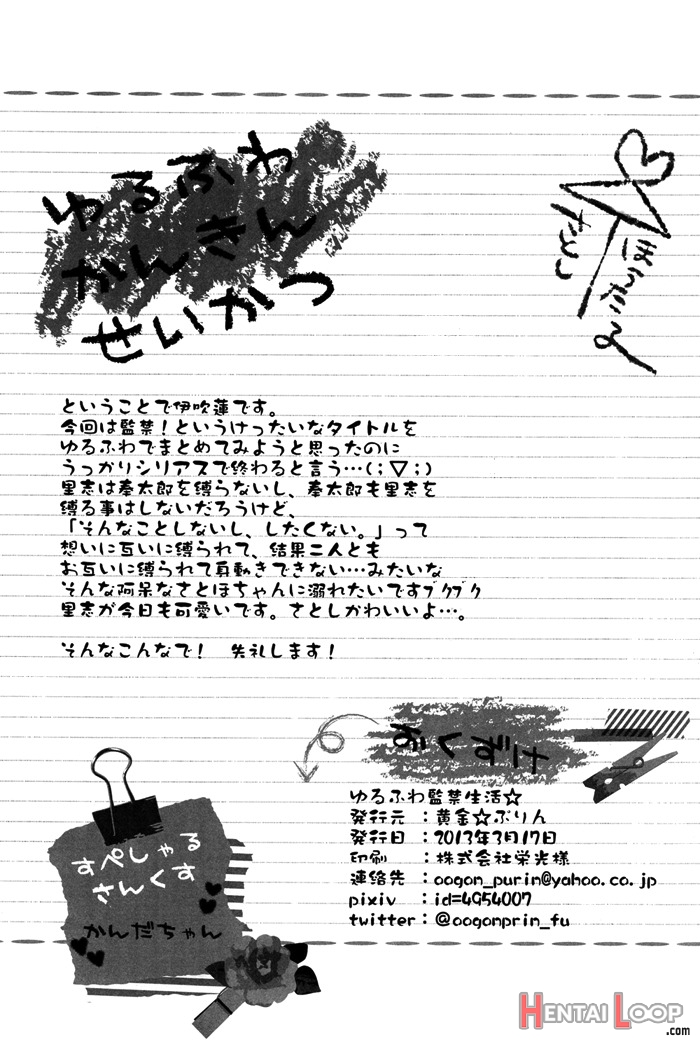 ゆるふわ
かんきん
せいかつ
さとし
ほうたる
ということで伊吹蓮です。
今回は監禁！というけったいなタイトルを
ゆるふわでまとめてみようと思ったのに
うっかりシリアスで終わると言う…(；▽；)
里志は奉太郎を縛らないし、奉太郎も里志を
縛る事はしないだろうけど、
「そんなことしないし、したくない。」って
想いに互いに縛られて、結果二人とも
お互いに縛られて身動きできない…みたいな
そんな阿呆なさとほちゃんに溺れたいですブクブク
里志が今日も可愛いです。さとしかわいいよ…。
そんなこんなで！　失礼します！
おくづけ
ゆるふわ監禁生活☆
発行元　：黄金☆ぷりん
発行日　：2013年3月17日
印刷　　：株式会社栄光様
連絡先　：oogon_purin@yahoo.co.jp
pixiv　：id=4954007
twitter：@oogonprin_fu
すぺしゃる
さんくす
かんだちゃん
HENTAI LOOP
.com